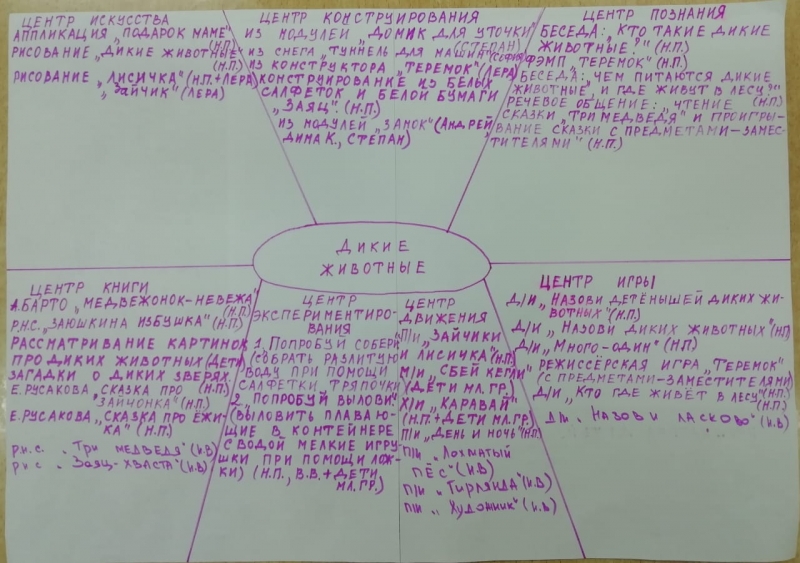 ЦЕНТР ИСКУССТВА
АППЛИКАЦИЯ „ПОДАРОК МАМЕ"
(Н.П.)
РИСОВАНИЕ „ДИКИЕ ЖИВОТНЫЕ"
(Н.П.)
РИСОВАНИЕ „ЛИСИЧКА" (Н.П.+ЛЕРА)
„ЗАЙЧИК" (ЛЕРА)
ЦЕНТР КОНСТРУИРОВАНИЯ
ИЗ МОДУЛЕЙ „ДОМИК ДЛЯ УТОЧКИ"
(СТЕПАН)
ИЗ СНЕГА „ТУННЕЛЬ ДЛЯ МАШИН" (СОФИЯ)
ИЗ КОНСТРУКТОРА „ТЕРЕМОК" (ЛЕРА)
КОНСТРУИРОВАНИЕ ИЗ БЕЛЫХ
САЛФЕТОК И БЕЛОЙ БУМАГИ
„ЗАЯЦ". (Н.П.)
ИЗ МОДУЛЕЙ „ЗАМОК" (АНДРЕЙ,
ДИМА К., СТЕПАН)
ЦЕНТР ПОЗНАНИЯ
БЕСЕДА: „КТО ТАКИЕ ДИКИЕ
ЖИВОТНЫЕ?" (Н.П.)
ФЭМП „ТЕРЕМОК" (Н.П.)
БЕСЕДА: „ЧЕМ ПИТАЮТСЯ ДИКИЕ
ЖИВОТНЫЕ, И ГДЕ ЖИВУТ В ЛЕСУ?"
(Н.П.)
РЕЧЕВОЕ ОБЩЕНИЕ: „ЧТЕНИЕ
СКАЗКИ „ТРИ МЕДВЕДЯ" И ПРОИГРЫ-
ВАНИЕ СКАЗКИ С ПРЕДМЕТАМИ-ЗАМЕС-
ТИТЕЛЯМИ" (Н.П.)
ДИКИЕ
ЖИВОТНЫЕ
ЦЕНТР КНИГИ
А.БАРТО „МЕДВЕЖОНОК-НЕВЕЖА"
(Н.П.)
Р.Н.С. „ЗАЮШКИНА ИЗБУШКА" (Н.П.)
РАССМАТРИВАНИЕ КАРТИНОК
ПРО ДИКИХ ЖИВОТНЫХ (ДЕТИ)
ЗАГАДКИ О ДИКИХ ЗВЕРЯХ
(Н.П.)
Е.РУСАКОВА „СКАЗКА ПРО
ЗАЙЧОНКА" (Н.П.)
Е.РУСАКОВА „СКАЗКА ПРО ЁЖИ-
КА" (Н.П.)
р.н.с. „Три медведя" (И.В)
р.н.с „Заяц-хваста" (И.В)
ЦЕНТР
ЭКСПЕРИМЕНТИРО-
ВАНИЯ
1. ПОПРОБУЙ СОБЕРИ
(СОБРАТЬ РАЗЛИТУЮ
ВОДУ ПРИ ПОМОЩИ
САЛФЕТКИ, ТРЯПОЧКИ)
2. „ПОПРОБУЙ ВЫЛОВИ"
(ВЫЛОВИТЬ ПЛАВАЮ-
ЩИЕ В КОНТЕЙНЕРЕ
С ВОДОЙ МЕЛКИЕ ИГРУ-
ШКИ ПРИ ПОМОЩИ ЛОЖ-
КИ) (Н.П., В.В.+ДЕТИ
МЛ.ГР.)
ЦЕНТР
ДВИЖЕНИЯ
П/И „ЗАЙЧИКИ
И ЛИСИЧКА" (Н.П.)
М/И „СБЕЙ КЕГЛИ"
(ДЕТИ МЛ.ГР.)
Х/И „КАРАВАЙ"
(Н.П.+ДЕТИ МЛ.ГР.)
П/И „ДЕНЬ И НОЧЬ" (Н.П.)
П/И „Лохматый
ПЁС" (И.В)
П/И „Гирлянда" (И.В)
П/И „Художник" (И.В)
ЦЕНТР ИГРЫ
Д/И „НАЗОВИ ДЕТЁНЫШЕЙ ДИКИХ ЖИ-
ВОТНЫХ" (Н.П.)
Д/И „НАЗОВИ ДИКИХ ЖИВОТНЫХ" (Н.П.)
Д/И „МНОГО-ОДИН" (Н.П.)
РЕЖИССЁРСКАЯ ИГРА „ТЕРЕМОК"
(С ПРЕДМЕТАМИ-ЗАМЕСТИТЕЛЯМИ)
(Н.П.)
Д/И „КТО ГДЕ ЖИВЁТ В ЛЕСУ"
(Н.П.)
Д/И. „НАЗОВИ ЛАСКОВО" (И.В)